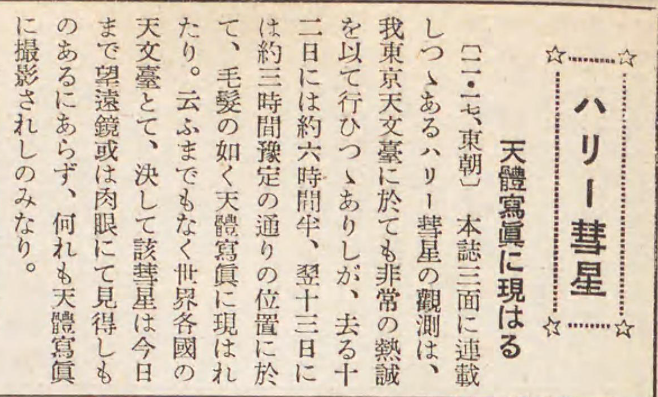 ハリー彗星
天體寫眞に現はる
〔二・一七、東朝〕 本誌三面に連載
しつゝあるハリー彗星の觀測は、
我東京天文臺に於ても非常の熱誠
を以て行ひつゝありしが、去る十
二日には約六時間半、翌十三日に
は約三時間豫定の通りの位置に於
て、毛髮の如く天體寫眞に現はれ
たり。云ふまでもなく世界各國の
天文臺とて、決して該彗星は今日
まで望遠鏡或は肉眼にて見得しも
のあるにあらず、何れも天體寫眞
に撮影されしのみなり。